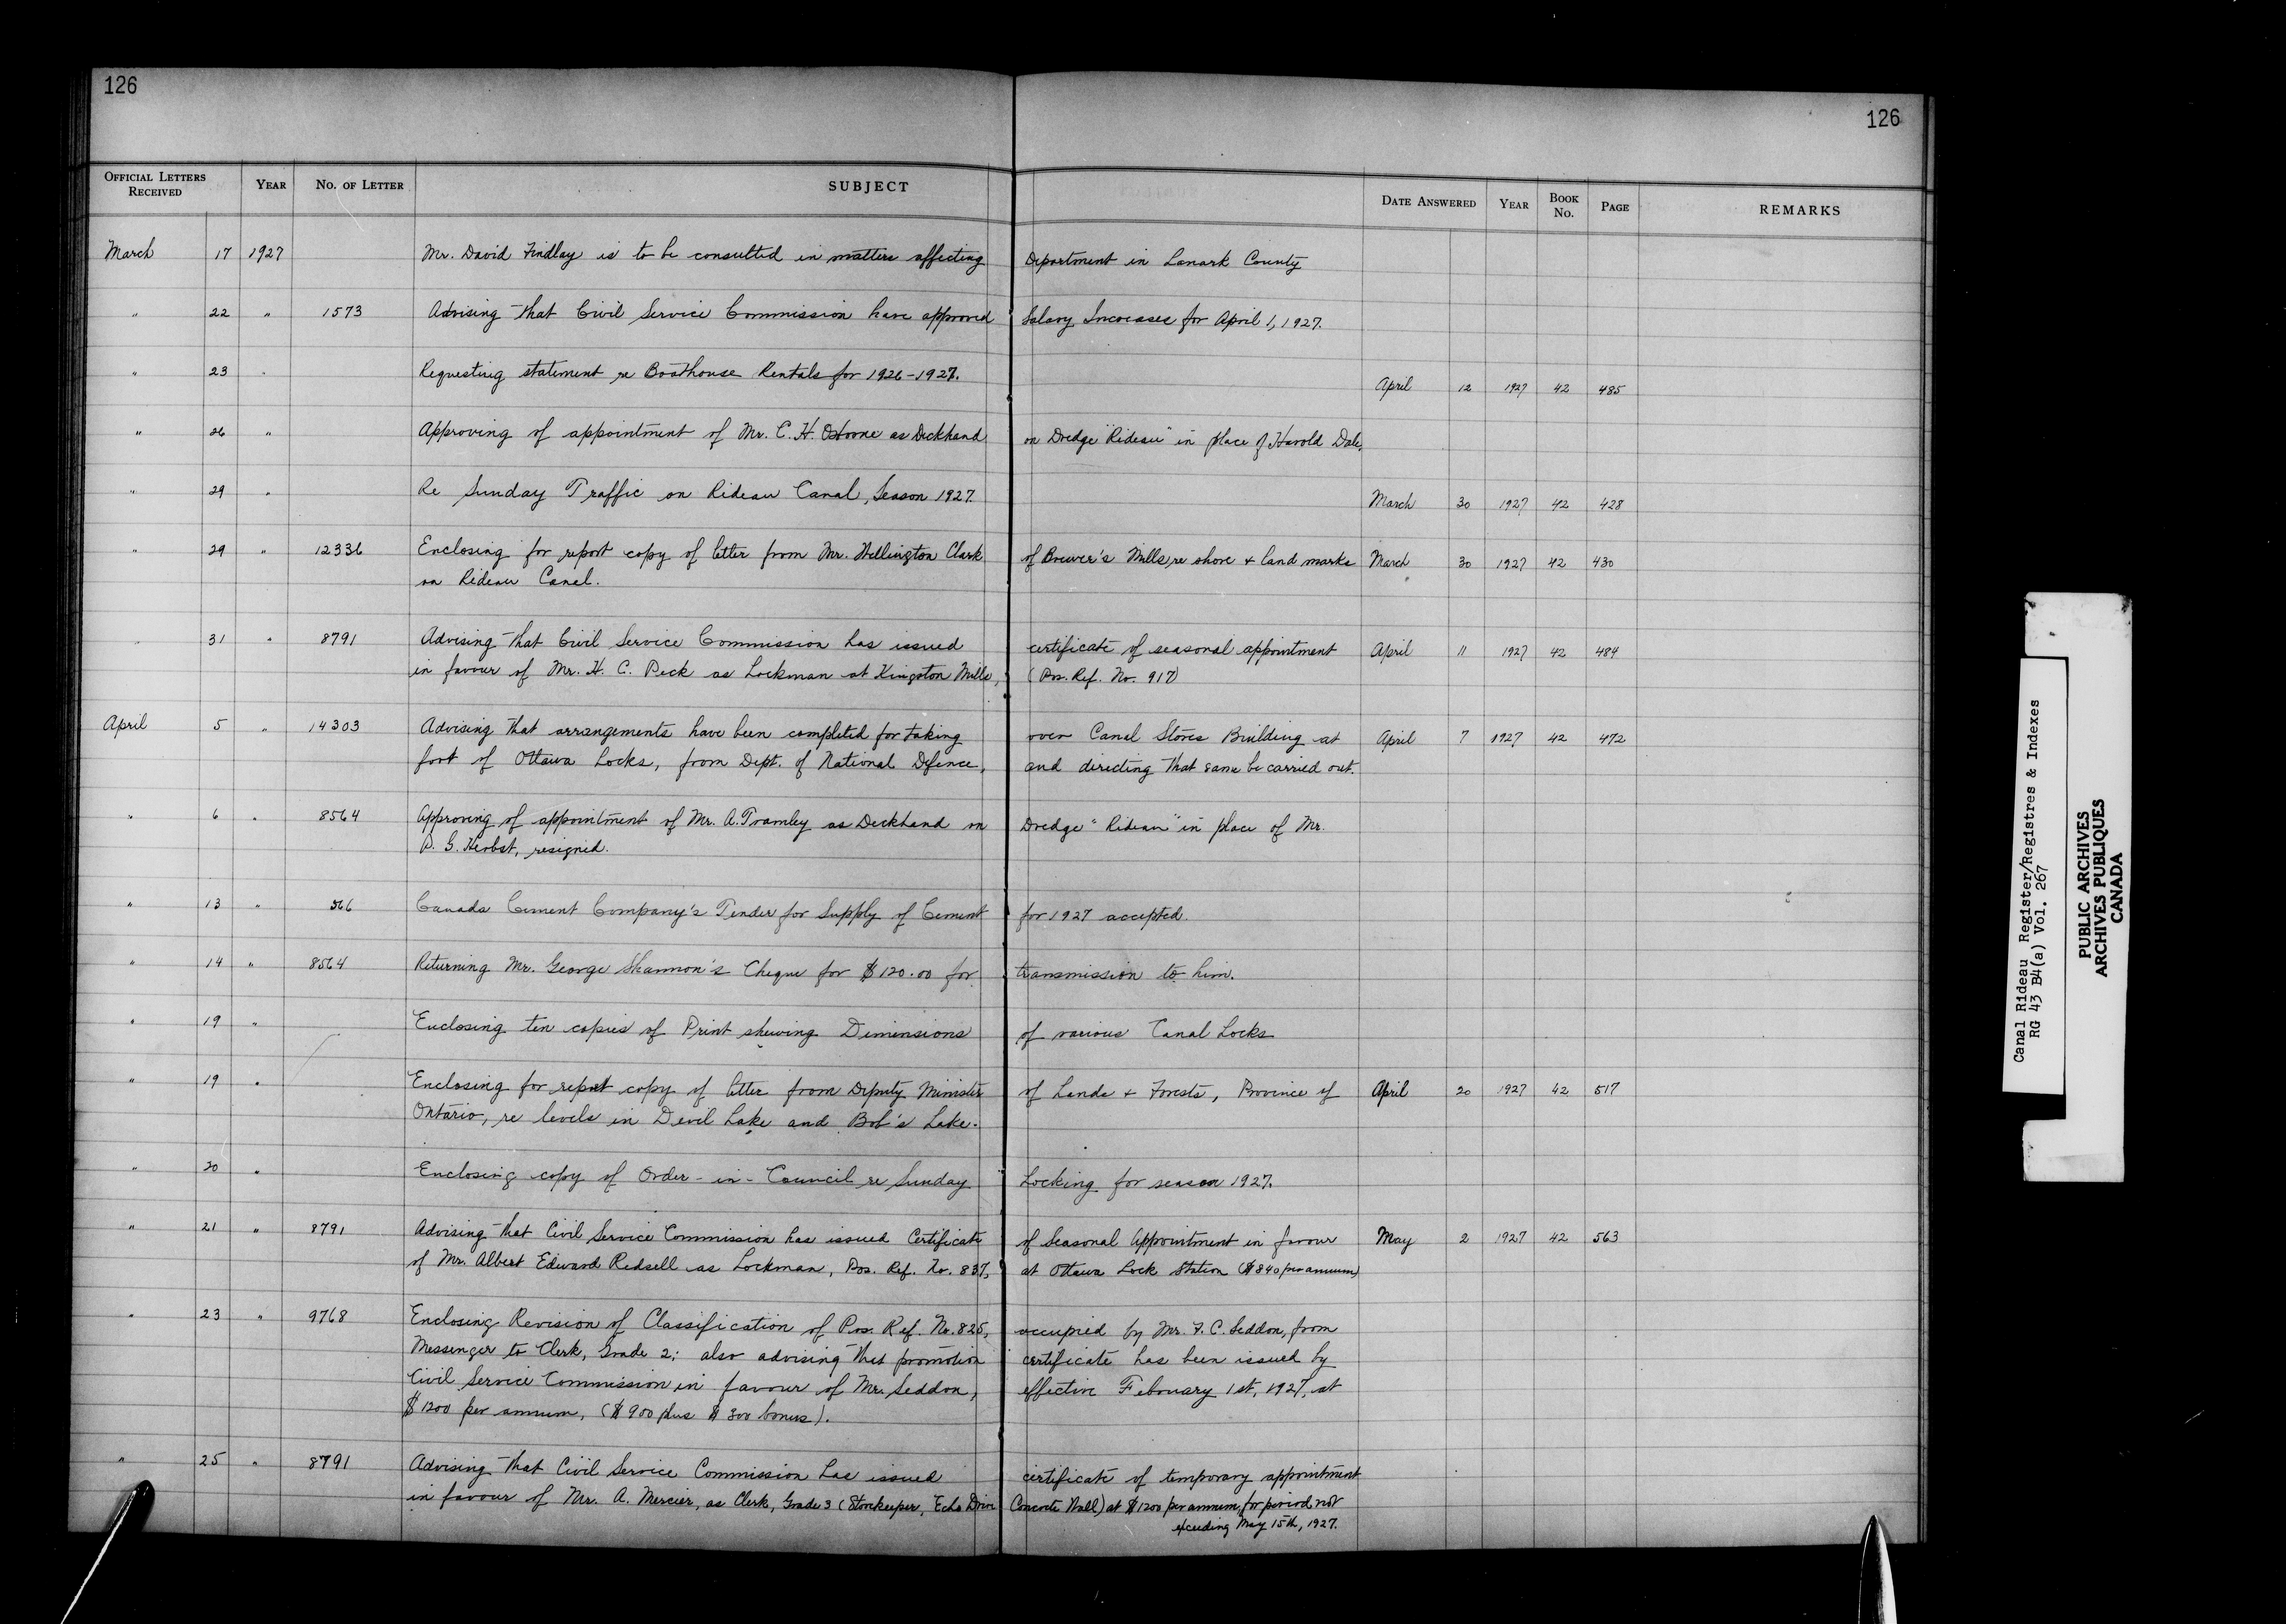 126
126
OFFICIAL LETTERS RECEIVED YEAR NO. OF LETTER SUBJECT DATE ANSWERED YEAR BOOK No. PAGE REMARKS
March 17 1927 Mr. David Findlay is to be consulted in matters affecting Department in Lanark County
" 22 " 1573 Advising that Civil Service Commission have approved Salary Increases for April 1, 1927.
" 23 " Requesting statement re Boathouse Rentals for 1926-1927. April 12 1927 42 485
" 26 " Approving of appointment of Mr. C. H. Osborne as Deckhand on Dredge "Rideau" in place of Harold Dale.
" 29 " Re Sunday Traffic on Rideau Canal, Season 1927. March 30 1927 42 428
" 29 " 12336 Enclosing for report copy of letter from Mr. Wellington Clark of Brewer's Mills, re shore & land marks March 30 1927 42 430
on Rideau Canal.
" 31 " 8791 Advising that Civil Service Commission has issued certificate of seasonal appointment April 11 1927 42 484
in favour of Mr. H. C. Peck as Lockman at Kingston Mills, (Pos. Ref. No. 917)
April 5 " 14303 Advising that arrangements have been completed for taking over Canal Stores Building at April 7 1927 42 472
foot of Ottawa Locks, from Dept. of National Defence, and directing that same be carried out.
" 6 " 8564 Approving of appointment of Mr. A. Tramley as Deckhand on Dredge "Rideau" in place of Mr.
G. Herbst, resigned.
" 13 " 566 Canada Cement Company's Tender for Supply of Cement for 1927 accepted.
" 14 " 8564 Returning Mr. George Shannon's Cheque for $120.00 for transmission to him.
" 19 " Enclosing ten copies of Print shewing Dimensions of various Canal Locks
" 19 " Enclosing for report copy of letter from Deputy Minister of Lands & Forests, Province of April 20 1927 42 517
Ontario, re levels in Devil Lake and Bob's Lake.
" 20 " Enclosing copy of Order-in-Council re Sunday Locking for season 1927.
" 21 " 8791 Advising that Civil Service Commission has issued Certificate of Seasonal Appointment in favour May 2 1927 42 563
of Mr. Albert Edward Redsell as Lockman, Pos. Ref. No. 837, at Ottawa Lock Station ($840 per annum)
" 23 " 9768 Enclosing Revision of Classification of Pos. Ref. No. 825, occupied by Mr. F. C. Seddon, from
Messenger to Clerk, Grade 2; also advising that promotion certificate has been issued by
Civil Service Commission in favour of Mr. Seddon, effective February 1st, 1927, at
$1200 per annum, ($900 plus $300 bonus).
" 25 " 8791 Advising that Civil Service Commission has issued certificate of temporary appointment
in favour of Mr. A. Mercier, as Clerk, Grade 3 (Storekeeper, Echo Drive Concrete Wall) at $1200 per annum, for period not
exceeding May 15th, 1927.
Canal Rideau Register/Registres & Indexes
RG 43 B4(a) Vol. 267
PUBLIC ARCHIVES
ARCHIVES PUBLIQUES
CANADA